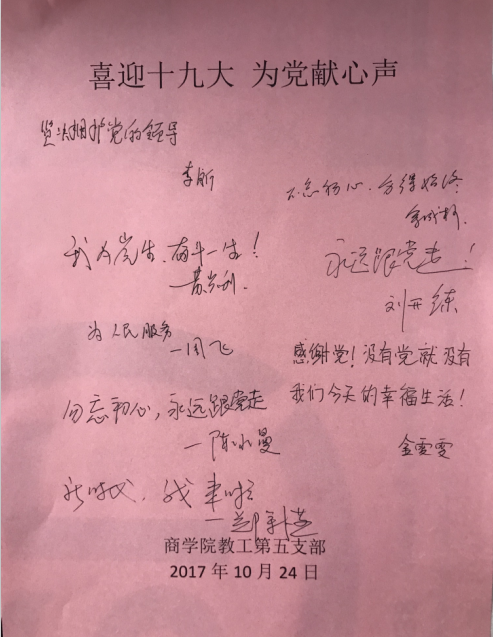 喜迎十九大 为党献心声
坚决拥护党的领导
李昕
我为党生，奋斗一生！
为人民服务
—周飞
勿忘初心，永远跟党走
—陈水曼
新时代，我来啦
不忘初心，方得始终
永远跟党走！
刘开练
感谢党！没有党就没有
我们今天的幸福生活！
金雯雯
商学院教工第五支部
2017 年 10 月 24 日